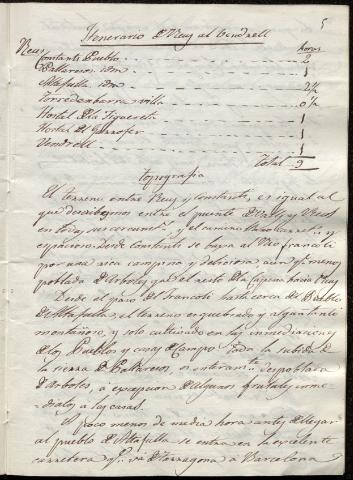 5
Itenerario de Reus al Vendrell
Reus horas
Constanti Pueblo 2
Pallaresos idm 1
Altafulla idm 2 1/2
Torredenbarra villa 0 1/2
Hostal de la Figuereta 1
Hostal del Garrofer 1
Vendrell 1
Total 9
Topografia
El terreno entre Reus y Constanti, es igual al
que describimos entre el puente de y Reus
en todas sus y el camino llano y
espacioso. desde Constanti se baja al Rio francoli
por una area campiña y deliciosa aun qe. menos
poblada de Arboles que el resto de la hacia Reus
Desde el paso del francoli hasta cerca del Pueblo
de Altafulla el terreno es quebrado y algun tanto
montañoso, y solo cultivado en las inmediaciones
de los Pueblos y casas de Campo. Toda la subida de
la sierra de Pallaresos, es enteramte. despoblada
de Arboles, á excepcion de algunos frutales inme-
diatos a las casas.
Al poco menos de media hora antes de llegar
al pueblo de Altafulla se entra en la excelente
carretera qe. va de Tarragona a Barcelona